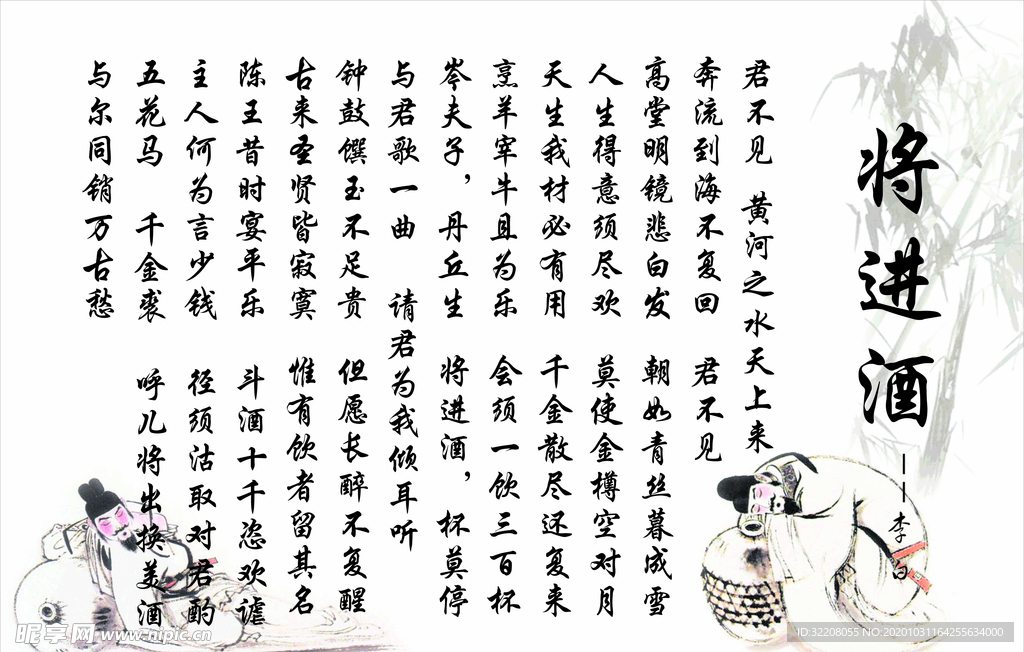 将进酒
——李白
君不见 黄河之水天上来
奔流到海不复回 君不见
高堂明镜悲白发 朝如青丝暮成雪
人生得意须尽欢 莫使金樽空对月
天生我材必有用 千金散尽还复来
烹羊宰牛且为乐 会须一饮三百杯
岑夫子，丹丘生 将进酒，杯莫停
与君歌一曲 请君为我倾耳听
钟鼓馔玉不足贵 但愿长醉不复醒
古来圣贤皆寂寞 惟有饮者留其名
陈王昔时宴平乐 斗酒十千恣欢谑
主人何为言少钱 径须沽取对君酌
五花马 千金裘 呼儿将出换美酒
与尔同销万古愁
昵享网 www.nipic.cn
ID:32208055 NO:20201031164255634000